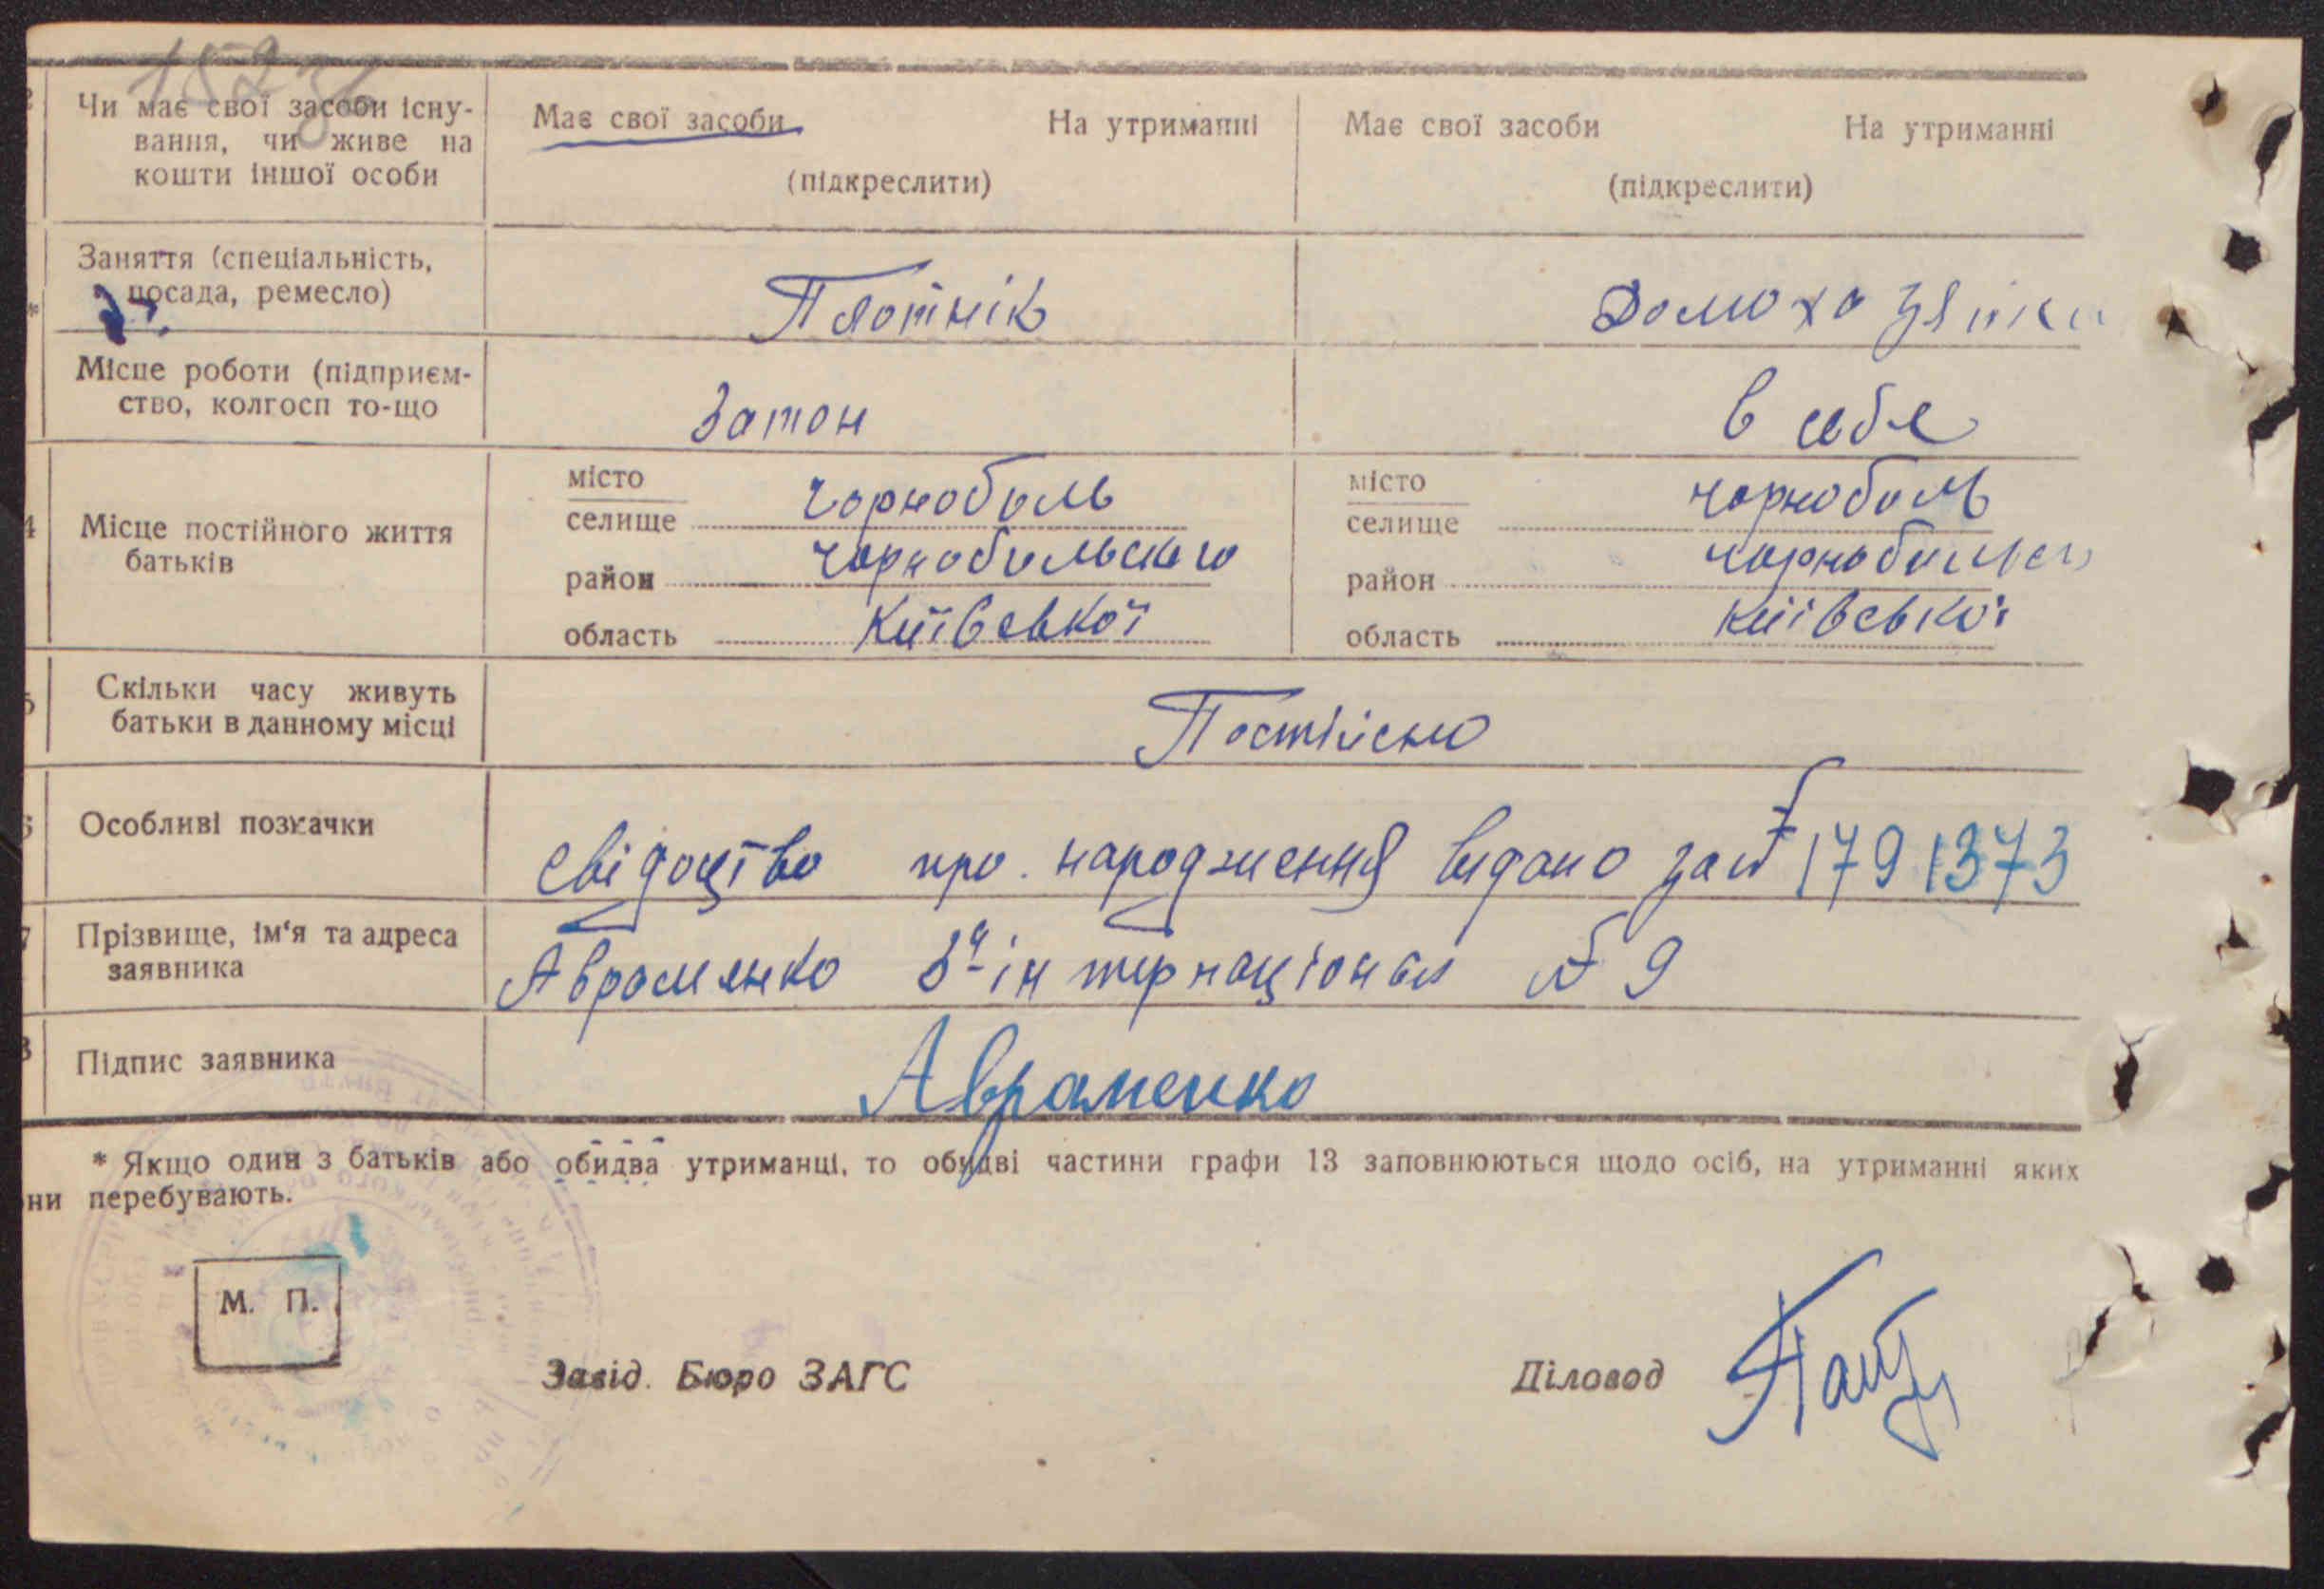 Чи має свої засоби існу-
вання, чи живе на
кошти іншої особи
Має свої засоби На утриманні
(підкреслити)
Має свої засоби На утриманні
(підкреслити)
*
Заняття (спеціальність,
посада, ремесло)
Плотнік
Домохазяйка
Місце роботи (підприєм-
ство, колгосп то-що
Затон
в себе
4
Місце постійного життя
батьків
місто
селище
Чорнобиль
район
Чорнобильского
область
Київської
місто
селище
Чорнобиль
район
область
Київської
5
Скільки часу живуть
батьки в данному місці
Постійно
6
Особливі позначки
свідоцтво про народження видано за № 1791373
7
Прізвище, ім‘я та адреса
заявника
Авраменко 3й інтернаціонал № 9
8
Підпис заявника
Авраменко
* Якщо один з батьків або обидва утриманці, то обидві частини графи 13 заповнюються щодо осіб, на утриманні яких
ни перебувають.
М. П.
Завід. Бюро ЗАГС
Діловод